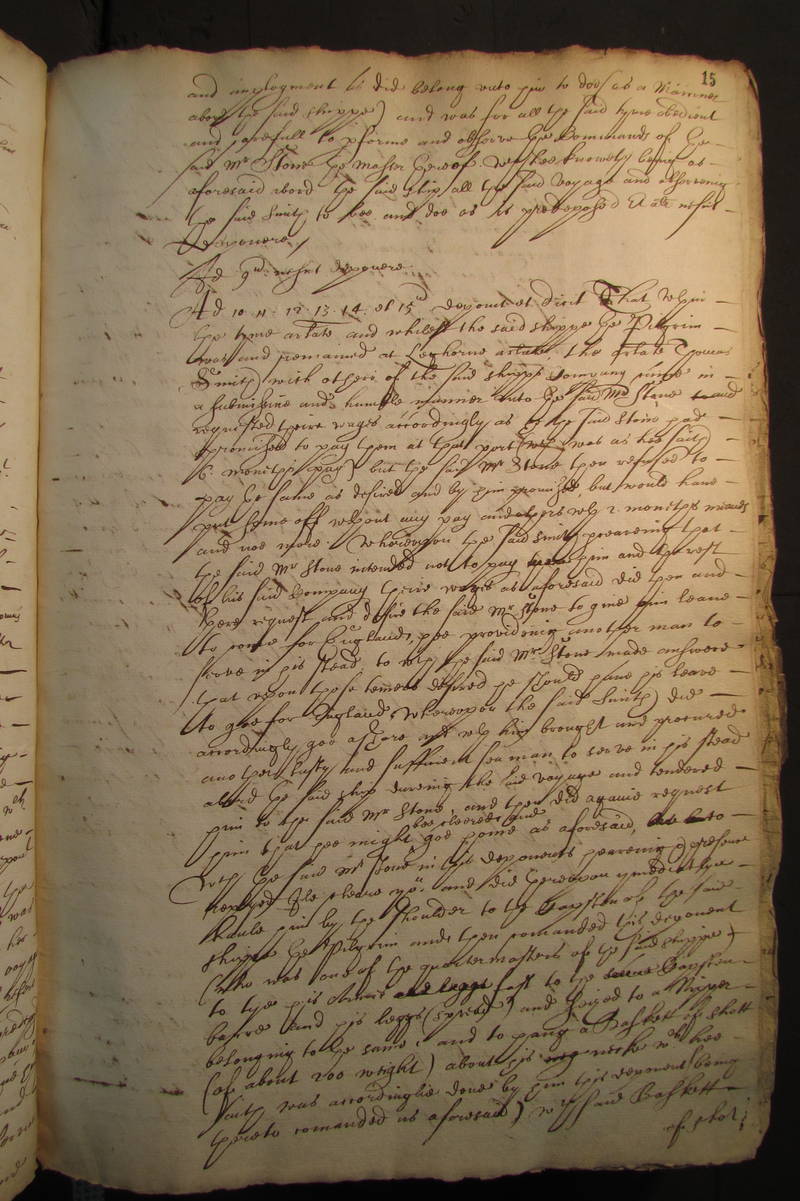 15
and imployment as did belong unto him to doe (as a Mariner
abord the said shippe) and was for all the said tyme obedient
and carefull to pforme and observe the Commands of the
said Mr Stone the Master thereof. wch hee knoweth being as
aforesaid abord the said ship all the said voyage and observeing
the said Smith to bee and doe as is predeposed Et aliter nescit
deponere /
Ad 9um nescit deponere
Ad 10. 11. 12. 13. 14. et 15um deponit et dicit That whin
the tyme arlate and whilest the said shippe the Pilgrim
was and remained at Leghorne arlate the arlate Thomas
Smith with others of the said shipps Company came in
a submissive and humble manner unto the said Mr Stone and
requested theire wages accordingly as the said Stone had
promised to pay them at that port (wch was as hee saith
6. moneths pay) but the said Mr Stone then refused to
pay the same as desired and by him promised, but would have
put some off without any pay and others wth 2. moneths meanes
and noe more. Whereupon the said Smith perceaving that
the said Mr Stone intended not to pay him and the rest
of his said Company theire wages as aforesaid did then and
there request and desire the said Mr Stone to give him leave
to come for England, hee providing another man to
serve in his stead, to wch the said Mr Stone made answere
that upon those termes desired he should have his leave
to goe for England, Whereupon the said Smith did
accordingly goe ashore and wth him brought and procured
another lusty and sufficient seaman to serve in his stead
abord the said ship dureing the said voyage and tendered
him to the said Mr Stone, and then did againe request
bee cleered and
him that hee might goe home as aforesaid,
Wch the said Mr Stone in this deponents heareing & presence
replyed Ile cleere you. and did thereupon ymediatlye
haule him by the shoulder to the Capsten of the said
shippe the Pilgrim and then comanded this deponent
(who was one of the quartermasters of the said shippe)
to tye his Armes fast to the Capsten
barre and his leggs (spread) and seized to a
belonging to the same, and to hang a Baskett of shott
(of about 200 weight) about his necke wch hee
saith was accordinglie done by him this deponent (being
thereto comanded as aforesaid) wch said Baskett
of shott